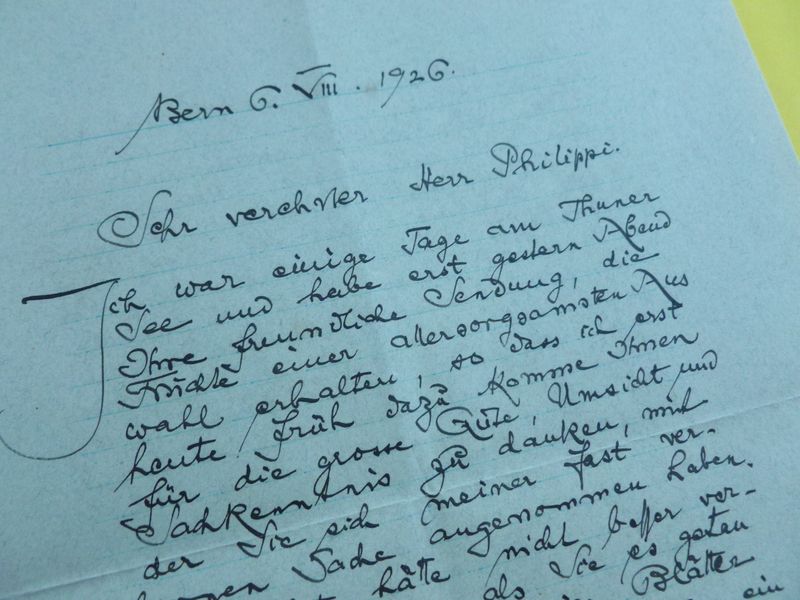 Bern 6. VIII. 1926.
Sehr verehrter Herr Philippi.
Ich war einige Tage am Thuner
See und habe erst gestern Abend
Ihre freundliche Sendung, die
Früchte einer allersorgsamsten Aus
wahl erhalten, so dass ich erst
heute früh dazu komme Ihnen
für die grosse Güte, Umsicht und
Sachkenntnis zu danken, mit
der Sie sich meiner fast ver-
Sache angenommen haben.
hätte nicht besser ver-
als Sie es getan
Blätter
ein